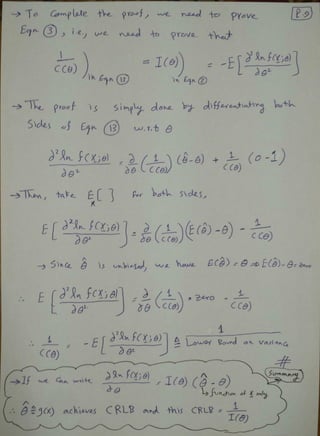 → To Complete the proof, we need to prove P.9
Eqn ③, i.e., we need to prove that
1/C(θ) ) in Eqn ⑬ = I(θ) ) in Eqn ② = -E[∂² ln f(x;θ)/∂θ²]
→ The proof is simply done by differentiating both
Sides of Eqn ⑬ w.r.t θ
∂² ln f(x;θ)/∂θ² = ∂/∂θ (1/C(θ)) (θ̂-θ) + 1/C(θ) (0-1)
→ Then, take E_x[ ] for both sides,
E[∂² ln f(x;θ)/∂θ²] = ∂/∂θ (1/C(θ)) (E(θ̂)-θ) - 1/C(θ)
→ Since θ̂ is unbiased, we have E(θ̂)=θ ⇒ E(θ̂)-θ=zero
∴ E[∂² ln f(x;θ)/∂θ²] = ∂/∂θ (1/C(θ)) * zero - 1/C(θ)
∴ 1/C(θ) = -E[∂² ln f(x;θ)/∂θ²] ≜ 1/Lower Bound on variance
#
Summary
→ If we can write ∂ ln f(x;θ)/∂θ = I(θ) (θ̂-θ)
↳ function of x only
∴ θ̂ ≜ g(x) achieves CRLB and this CRLB = 1/I(θ)